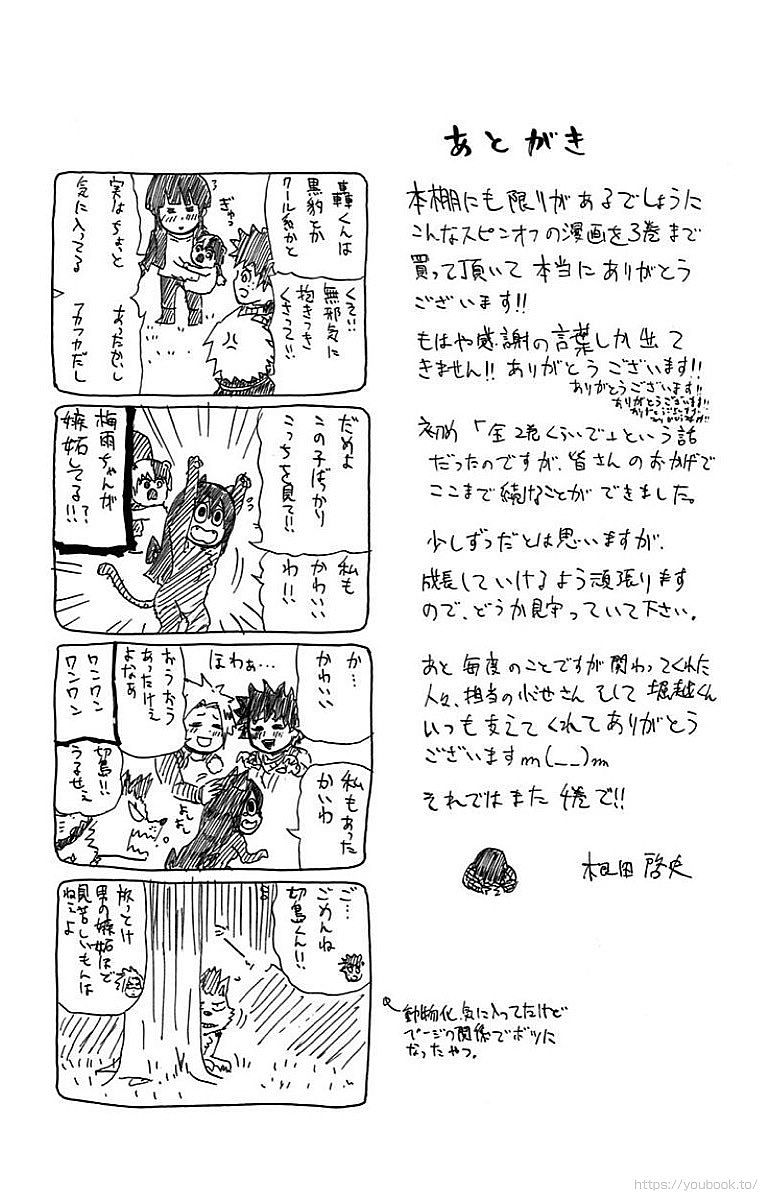 あとがき
本棚にも限りがあるでしょうに
こんなスピンオフの漫画を3巻まで
買って頂いて本当にありがとう
ございます!!
もはや感謝の言葉しか出て
きません!! ありがとうございます!!
ありがとうございます!!
ありがとうございます!!
初め「全2巻くらいで」という話
だったのですが、皆さんのおかげで
ここまで続くことができました。
少しずつだとは思いますが、
成長していけるよう頑張ります
ので、どうか見守っていて下さい。
あと毎度のことですが関わってくれた
人々、担当の小池さん そして 堀越くん
いつも支えてくれてありがとう
ございますm(__)m
それではまた4巻で!!
根田啓史
轟くんは
黒豹とか
クール系かと
ぎゅっ
実はちょっと
気に入ってる
あったかいし
フカフカだし
くそ!!
無邪気に
抱きつき
くさって!!
だめよ
この子ばっかり
こっちを見て!!
私も
かわいい
わ!!
梅雨ちゃんが
嫉妬してる!?
か…
かわいい
ほわぁ…
おうおう
あったけぇ
よなぁ
私もあった
かいわ
よしよし
ワンワン
ワンワン
切島!!
うるせぇ
ご…
ごめんね
切島くん!!
放っとけ
男の嫉妬ほど
見苦しいもんは
ねぇよ
動物化、気に入ってたけど
ページの関係でボツに
なったやつ。
https://youbook.to/